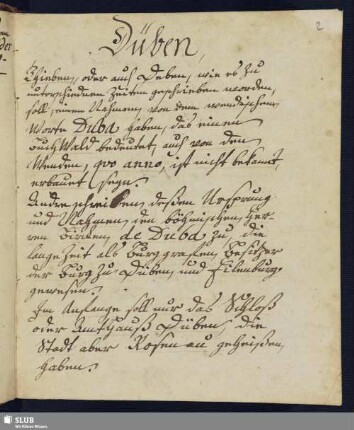 2
Düben,
Thieben, oder auch Deben, wie es zu
unterschiedenen Zeiten geschrieben worden,
soll seinen Nahmen von dem wendischen
Worte Duba haben, das einen
Wald bedeutet, auch von den
Wenden, quo anno, ist nicht bekannt,
erbauet seyn.
Andre schreiben dessen Ursprung
und Nahmen den böhmischen Her
ren de Duba zu, die
lange Zeit als Burggrafen, Besitzer
der Burg zu Düben, und Eilenburg
gewesen.
Im Anfange soll nur das Schloß
oder Amthauß Düben, die
Stadt aber Rosenau geheißen
haben.
SLUB
Wir führen Wissen.